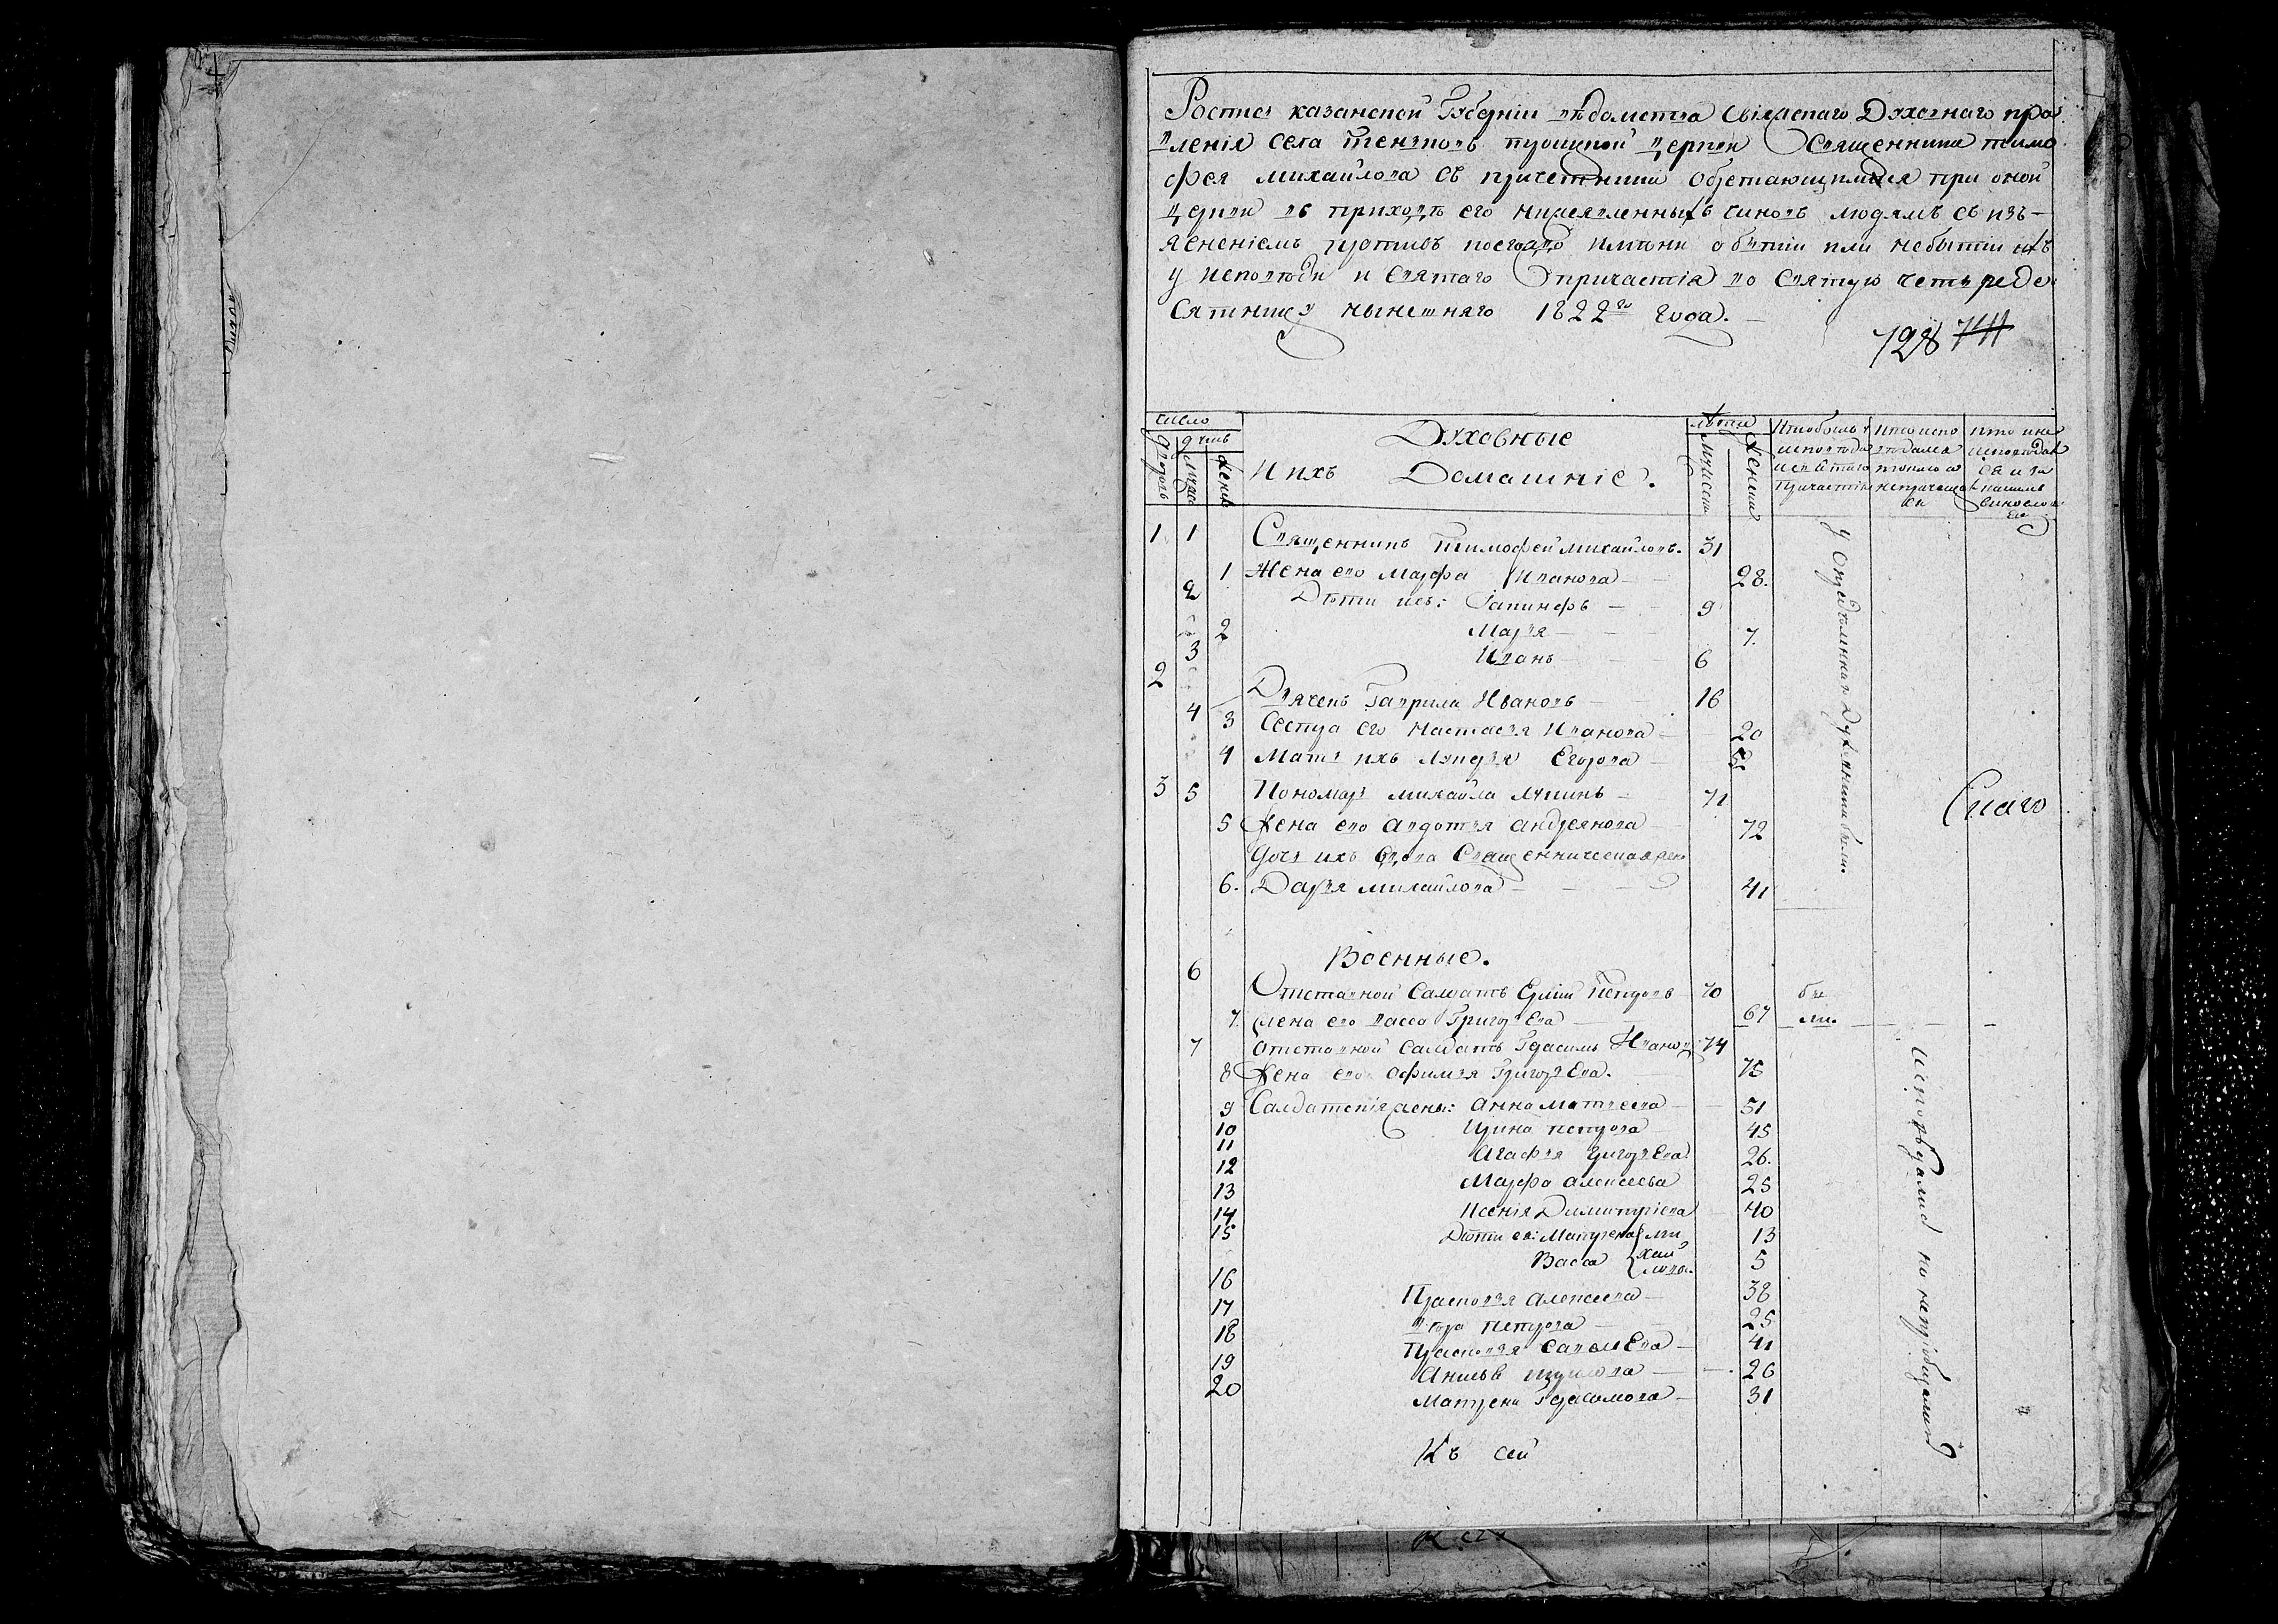 Роспись казанской Губерніи вѣдомства Свіяжскаго Духовнаго пра
вленія села теньковъ троицкой церкви Священника тимо
фея михайлова съ причетники обретающимися при оной
церкви въ приходѣ его нижеявленныхъ чиновъ людямъ съ изъ-
ясненіемъ противъ коегождо имѣни о бытіи или небытіи ихъ
у исповѣди и Святаго причастія во Святую четыреде
сятницу нынешняго 1822го года.
728 711
число
душъ
дворовъ
мужс
женъ
Духовные
и ихъ Домашніе.
лѣта
мужеска
женска
Кто былъ у
исповѣди
и святаго
Причастія
кто испо
ведался
токмо а
непричаща
ся
кто и не
исповѣдал
ся и за
какимъ
винослов
1 1 Священникъ тимофей михайловъ. 31
1 жена его марфа Иванова 28.
2 Дѣти ихъ: 9
2 Марья 7.
3 Иванъ 6
2
4 Дьячекъ Гаврила Ивановъ 16
3 Сестра его настасья Иванова 20
4 Мать ихъ Егорова
3 5 Пономарь михайла 71
5 жена его авдотья андреянова 72
дочь ихъ вдова Священническая жена
6. Дарья михайлова 41
Военные.
6 Отставной Салдатъ петровъ 70 бы
7. жена его васса Григорьева 67 ли.
7 Отставной салдатъ Герасимъ Иванов 74
8 жена его офимья григорьева. 75
9 Салдатскія жены: анна матвеева 51
10 Ирина петрова 45
11 Агафья григорьева 26.
12 Марфа алексеева 25
13 Ксенія Димитріева 40
14 Дѣти ея: Матрена ми 13
15 Васса хай лова. 5
16 Прасковья алексеева 38
17 петрова 25
18 Прасковья савельева 41
19 26
20 Матрена Герасимова 31
Къ сей